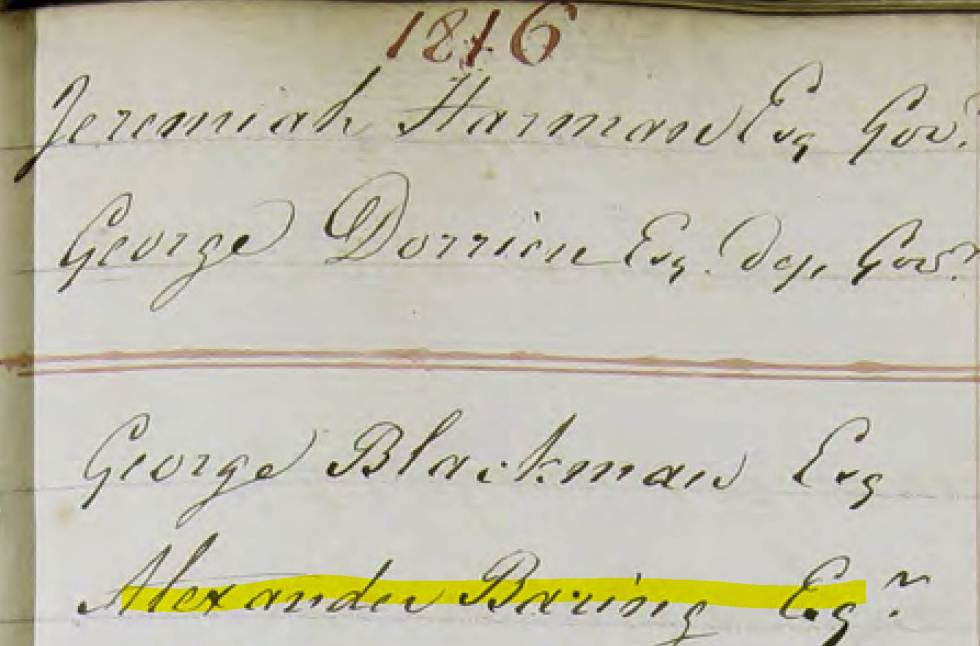 1816
Jeremiah Harman Esq Gov.r
George Dorrien Esq. Dep. Gov.r
George Blackman Esq
Alexander Baring Esq.r